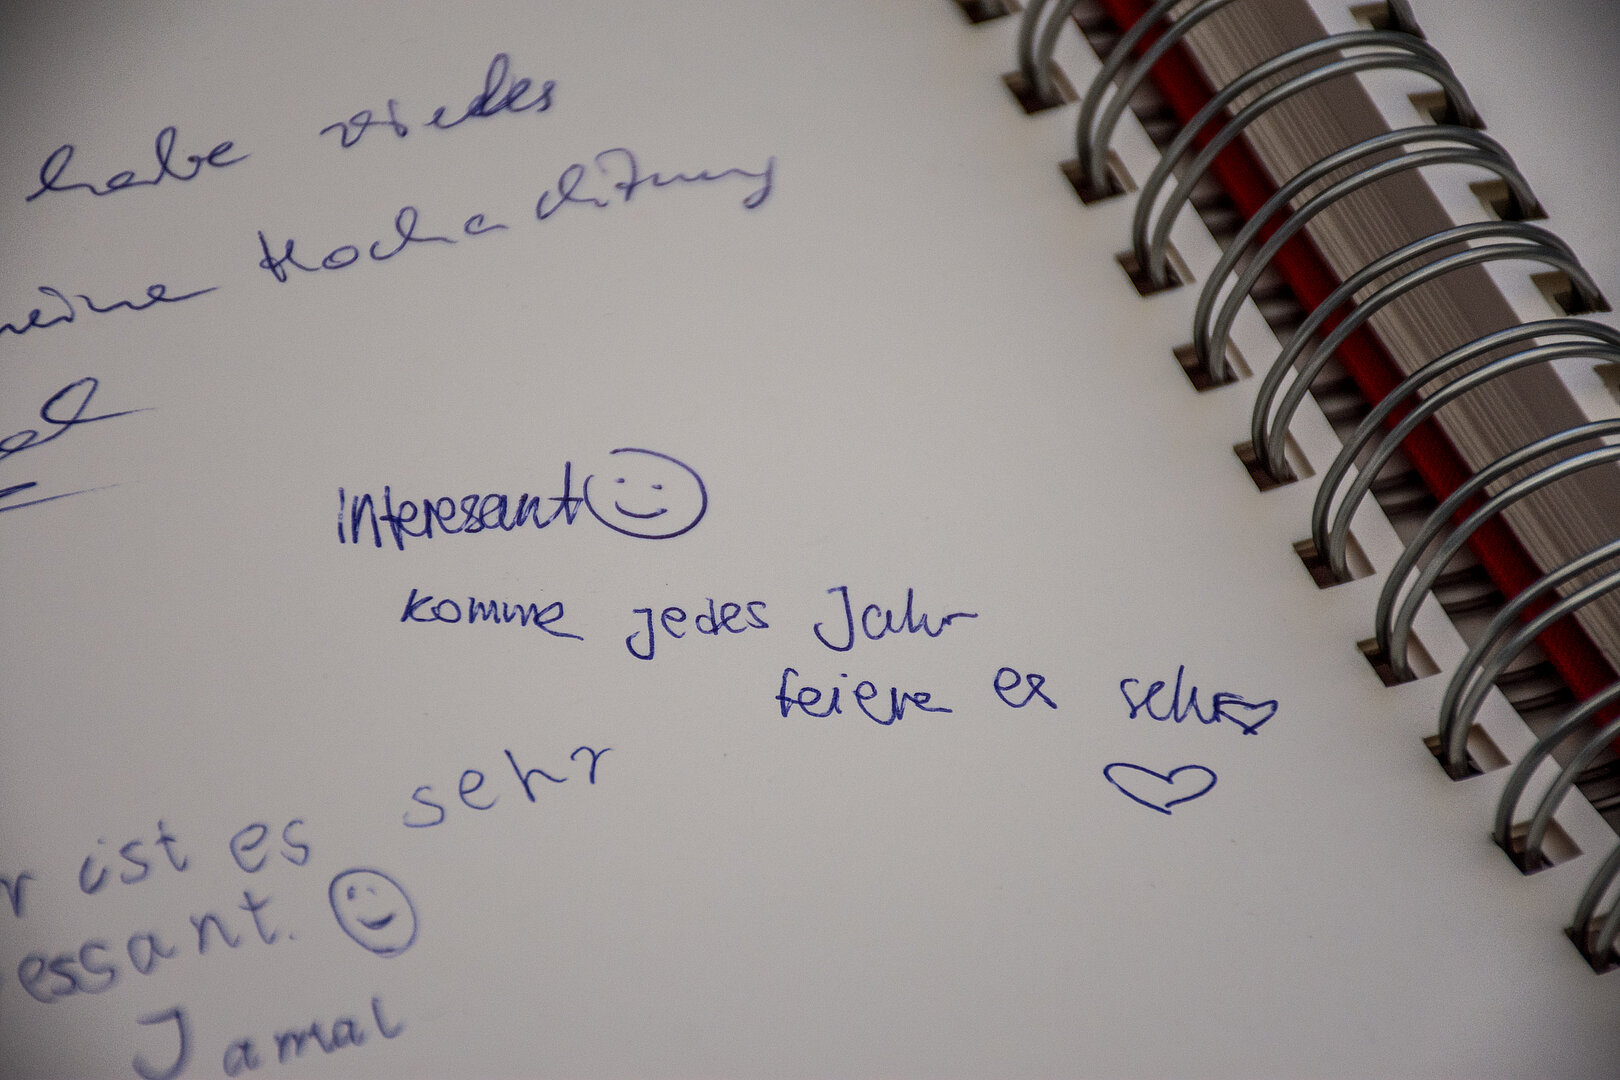 habe vieles
meine Hochachtung
interesant
komme jedes Jahr
feiere es sehr
r ist es sehr
essant.
Jamal